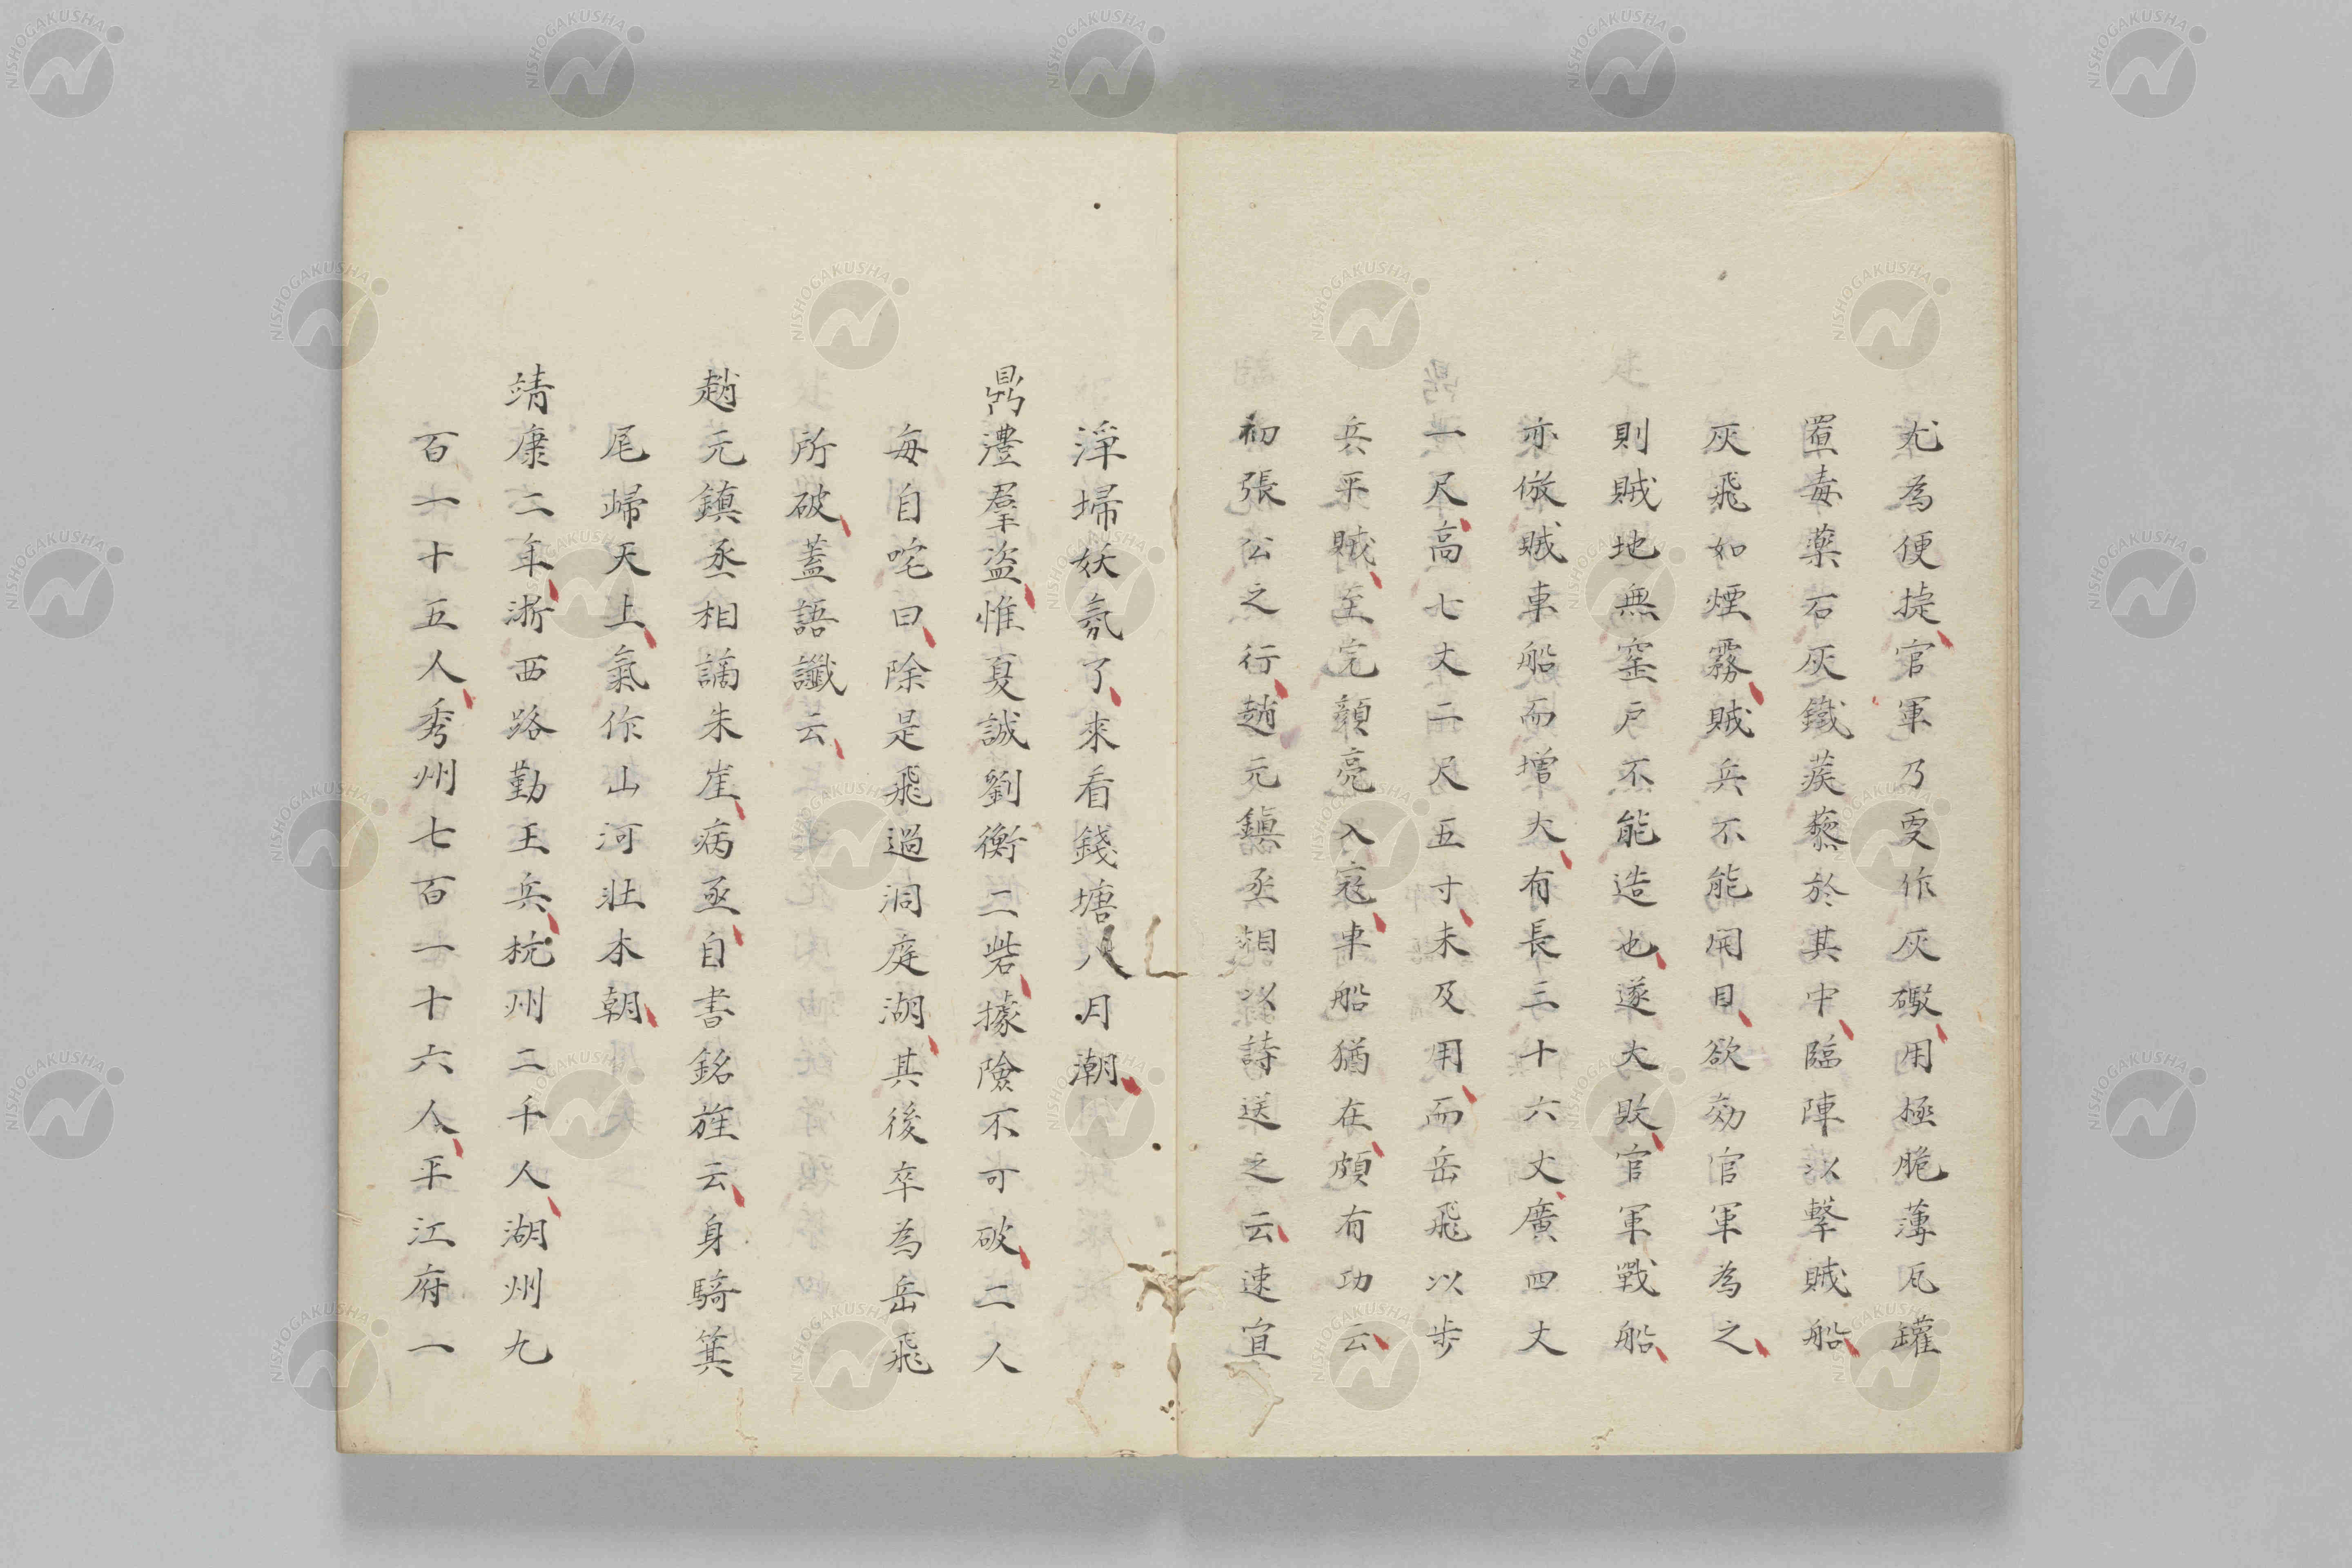 尤為便捷官軍乃更作灰礮用極脆薄瓦罐
置毒藥石灰鐵蒺藜於其中臨陣以擊賊船
灰飛如煙霧賊兵不能開目欲効官軍為之
則賊地無窯戶不能造也遂大敗官軍戰船
亦倣賊車船而增大有長三十六丈廣四丈
一尺高七丈二尺五寸未及用而岳飛以步
兵平賊至完顏亮入寇車船猶在頗有功云
初張公之行趙元鎮丞相以詩送之云速宜
淨埽妖氛了來看錢塘八月潮
鼎澧羣盜惟夏誠劉衡二砦據險不可破二人
每自咤曰除是飛過洞庭湖其後卒為岳飛
所破蓋語讖云
趙元鎮丞相謫朱崖病亟自書銘旌云身騎箕
尾歸天上氣作山河壯本朝
靖康二年浙西路勤王兵杭州二千人湖州九
百一十五人秀州七百一十六人平江府一
NISHOGAKUSHA